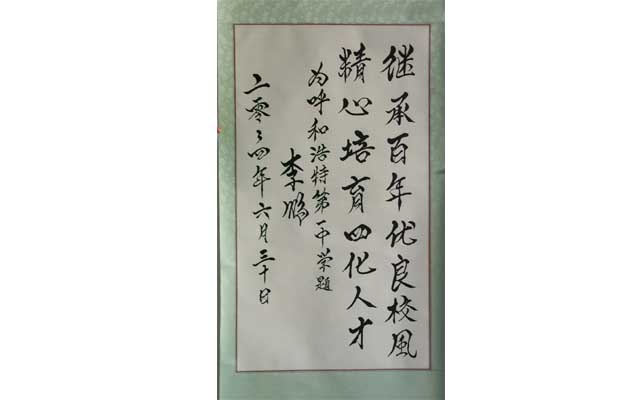 继承百年优良校风
精心培育四化人才
为呼和浩特第一中学题
李鹏
二零零四年六月三十日